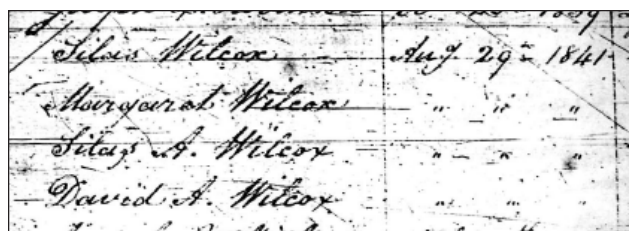 1839
Silas Wilcox Aug 29 1841
Margarat Wilcox " " "
Silas A. Wilcox " " "
David A. Wilcox " " "